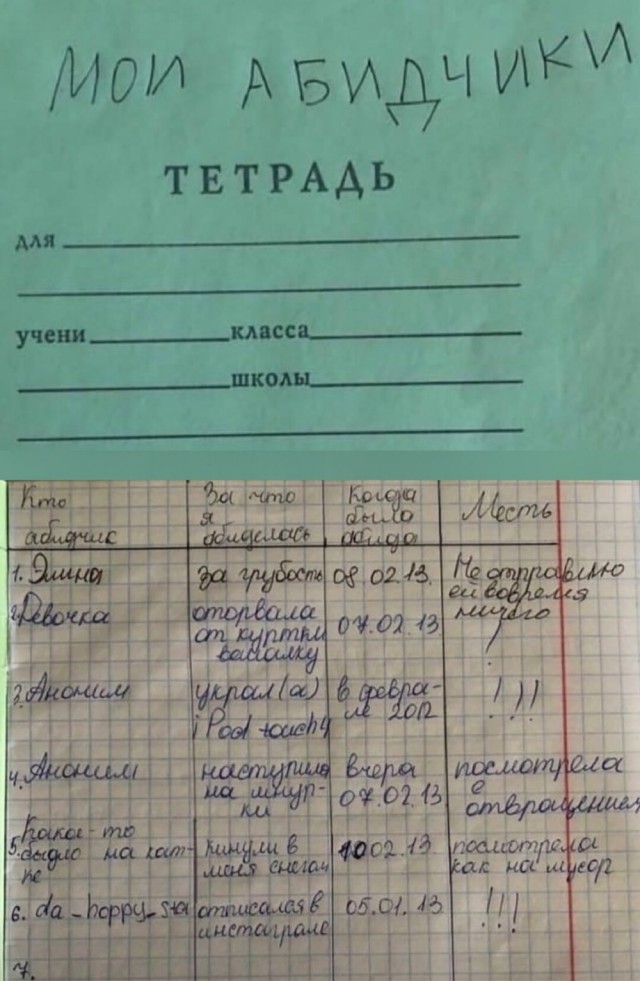 МОИ АБИДЧИКИ
ТЕТРАДЬ
для
учени класса
школы
Кто абидчик
За что я абиделась
Когда была абида
Месть
1. Элина
за грубость
08.02.13.
Не отправлю ей вовремя ничего
2. Девочка
оторвала от куртки
07.02.13
!
3. Аноним
украл(а) iPod touch 4
в феврале 2012
!!!
4. Аноним
наступила на шнурки
вчера 07.02.13
посмотрела с отвращением
5. Како-то быдло на катке
кинули в меня снегом
10 02.13.
посмотрела как на мусор
6. da_happy_star
отписался в инстаграме
05.01.13
!!!
7.